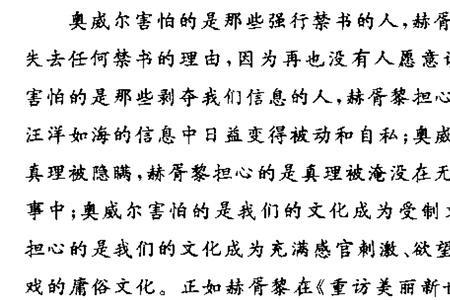 奥威尔害怕的是那些强行禁书的人,赫胥
失去任何禁书的理由,因为再也没有人愿意
害怕的是那些剥夺我们信息的人,赫胥黎担心
汪洋如海的信息中日益变得被动和自私;奥威
真理被隐瞒,赫胥黎担心的是真理被淹没在无
事中;奥威尔害怕的是我们的文化成为受制
担心的是我们的文化成为充满感官刺激、欲望
戏的庸俗文化。正如赫胥黎在《重访美丽新